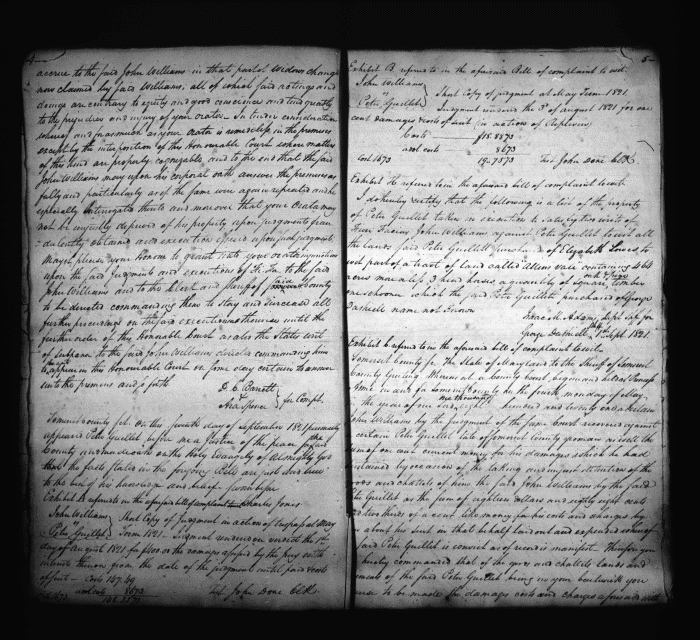 accrue to the said John Williams in that part of widows
now claimed by said Williams, all of which said actings and
doings are contrary to equity and good conscience and tend greatly
to the prejudice and injury of your orator. In tender consideration
whereof and inasmuch as your orator is remediless in the premises
except by the interposition of this Honourable Court where matters
of this kind are properly cognizable, and to the end that the said
John Williams may upon his corporal oath answer the premises as
fully and particularly as if the same were again repeated and he
specially interrogated thereto and moreover that your Orator may
not be unjustly deprived of his property upon Judgments
obtained and executions issued upon such judgments
May it please your Honour to grant unto your orator injunction
upon the said Judgments and executions of Fi. Fa. to the said
John Williams and to the Clerk and Sheriff of said county
to be directed commanding them to stay and surcease all
further proceedings on the said executions themselves until the
further order of this Honorable Court as also the States writ
of subpoena to the said John Williams commanding him
to appear in this Honourable Court on some day certain to answer
unto the premises and so forth
&
for Compt.
Somerset county Sct. On this seventh day of September 1821 personally
appeared Peter Guillet before me a Justice of the peace for the
County and made oath on the Holy Evangely of Almighty God
that the facts stated in the foregoing Bill are just and true
to the best of his knowledge and belief. Sworn before
Charles Jones
Exhibit B referred to in the aforesaid bill of complaint
John Williams
vs
Peter Guillet
Short Copy of Judgment in action of trespass at May
Term 1821. Judgment rendered the 3d
day of august 1821 for
interest thereon from the date of the judgment until paid &
of suit - Costs 147.69
addl costs 8673
Test John Done Clk
5
Exhibit B referred to in the aforesaid Bill of complaint to wit.
John Williams
vs
Peter Guillet
Short Copy of judgment at May Term 1821.
Judgment rendered the 3d of august 1821 for one
cent damages & costs of suit in action of Replevin
Costs $18.8873
addl costs 8673
19.7573 Test John Done Clk
Exhibit H referred to in the aforesaid bill of complaint to wit.
I do hereby certify that the following is a list of the property
of Peter Guillet taken in execution to satisfy two writs of
Fieri Facias John Williams against Peter Guillet to wit all
the lands said Peter Guillett purchased of Elizabeth Lowes, to
wit part of a tract of land called Allens vale containing 464
acres more or less 3 head horses a quantity of square timber
one schooner which the said Peter Guillet purchased of George
Dashiell name not known
Isaac M. Adams, depty Shff for
George Dashiell 7th Sept. 1821.
Exhibit C referred to in the aforesaid bill of complaint to wit
Somerset County Sc. The State of Maryland to the Sheriff of Somerset
County Greeting. Whereas at a County Court begun and held at Princess
Anne in and for Somerset County on the fourth monday of May
in the year of our Lord one thousand eight hundred and twenty one
John Williams by the Judgment of the same Court recovered against
a certain Peter Guillet late of Somerset County yeoman as well the
sum of one cent current money for his damages which he had
sustained by occasion of the taking and unjust detention of the
goods and chattels of him the said John Williams by the said
Peter Guillet as the sum of eighteen dollars and eighty eight cents
a cent like money for his costs and charges by
about his suit in that behalf laid out and expended whereof
said Peter Guillet is convict as of record is manifest. Therefore you
hereby commanded that of the goods and chattels lands and
tenements of the said Peter Guillet being in your bailiwick you
cause to be made the damages costs and charges aforesaid